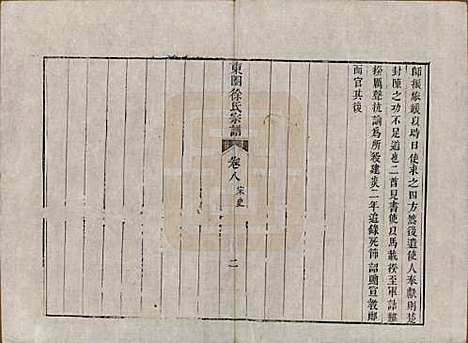 師振旅緩以時日使來之四方然後遣使人奉獻則楚
封陲之功不足道也二酋見書使以馬載揆至軍詰難
揆厲聲抗論為所殺建炎二年追錄死節詔贈宣教郎
而官其後
東園徐氏宗譜
卷八 宋史
二